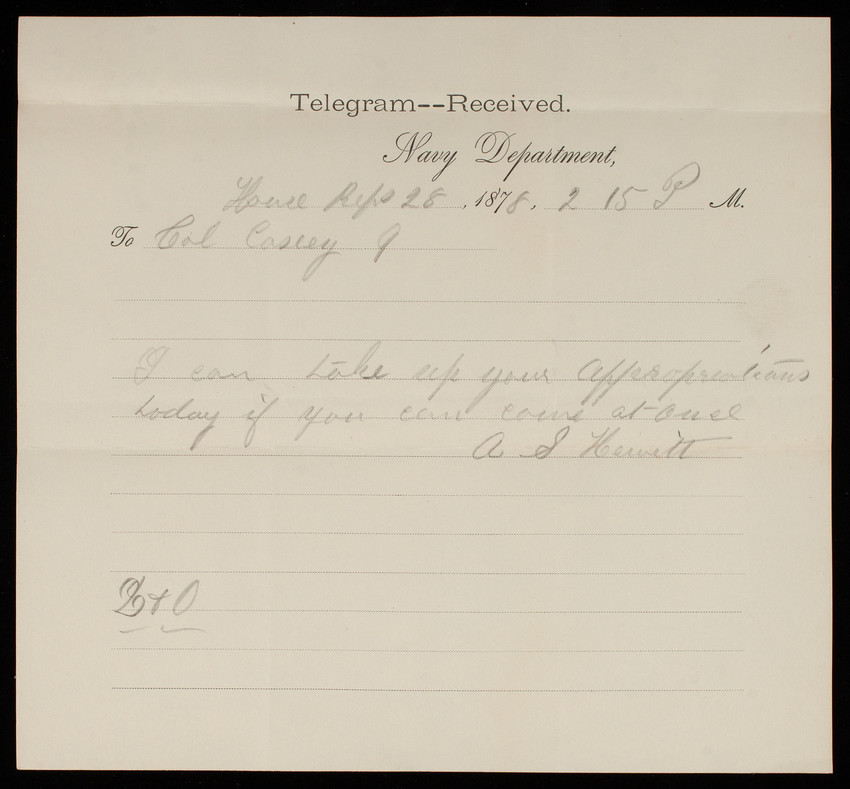 Telegram--Received.
Navy Department,
House Reps 28, 1878, 2 15 P M.
To Col Casey 9
I can take up your appropriations
today if you can come at once
A S Hewitt